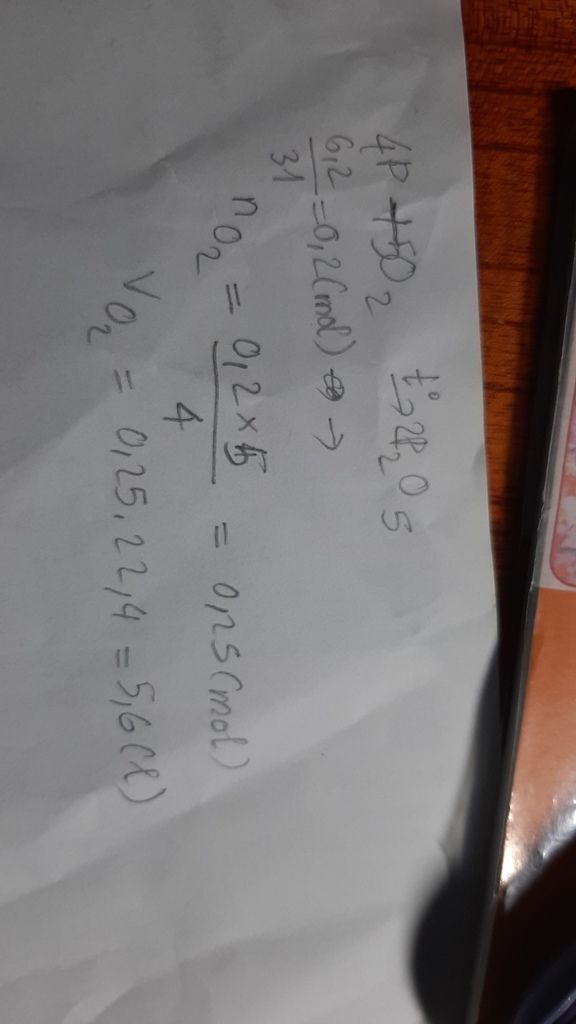 4P + 5O2 t°→ 2P2O5
6,2/31 = 0,2(mol) →
nO2 = 0,2 × 5/4 = 0,25(mol)
VO2 = 0,25.22,4 = 5,6(l)